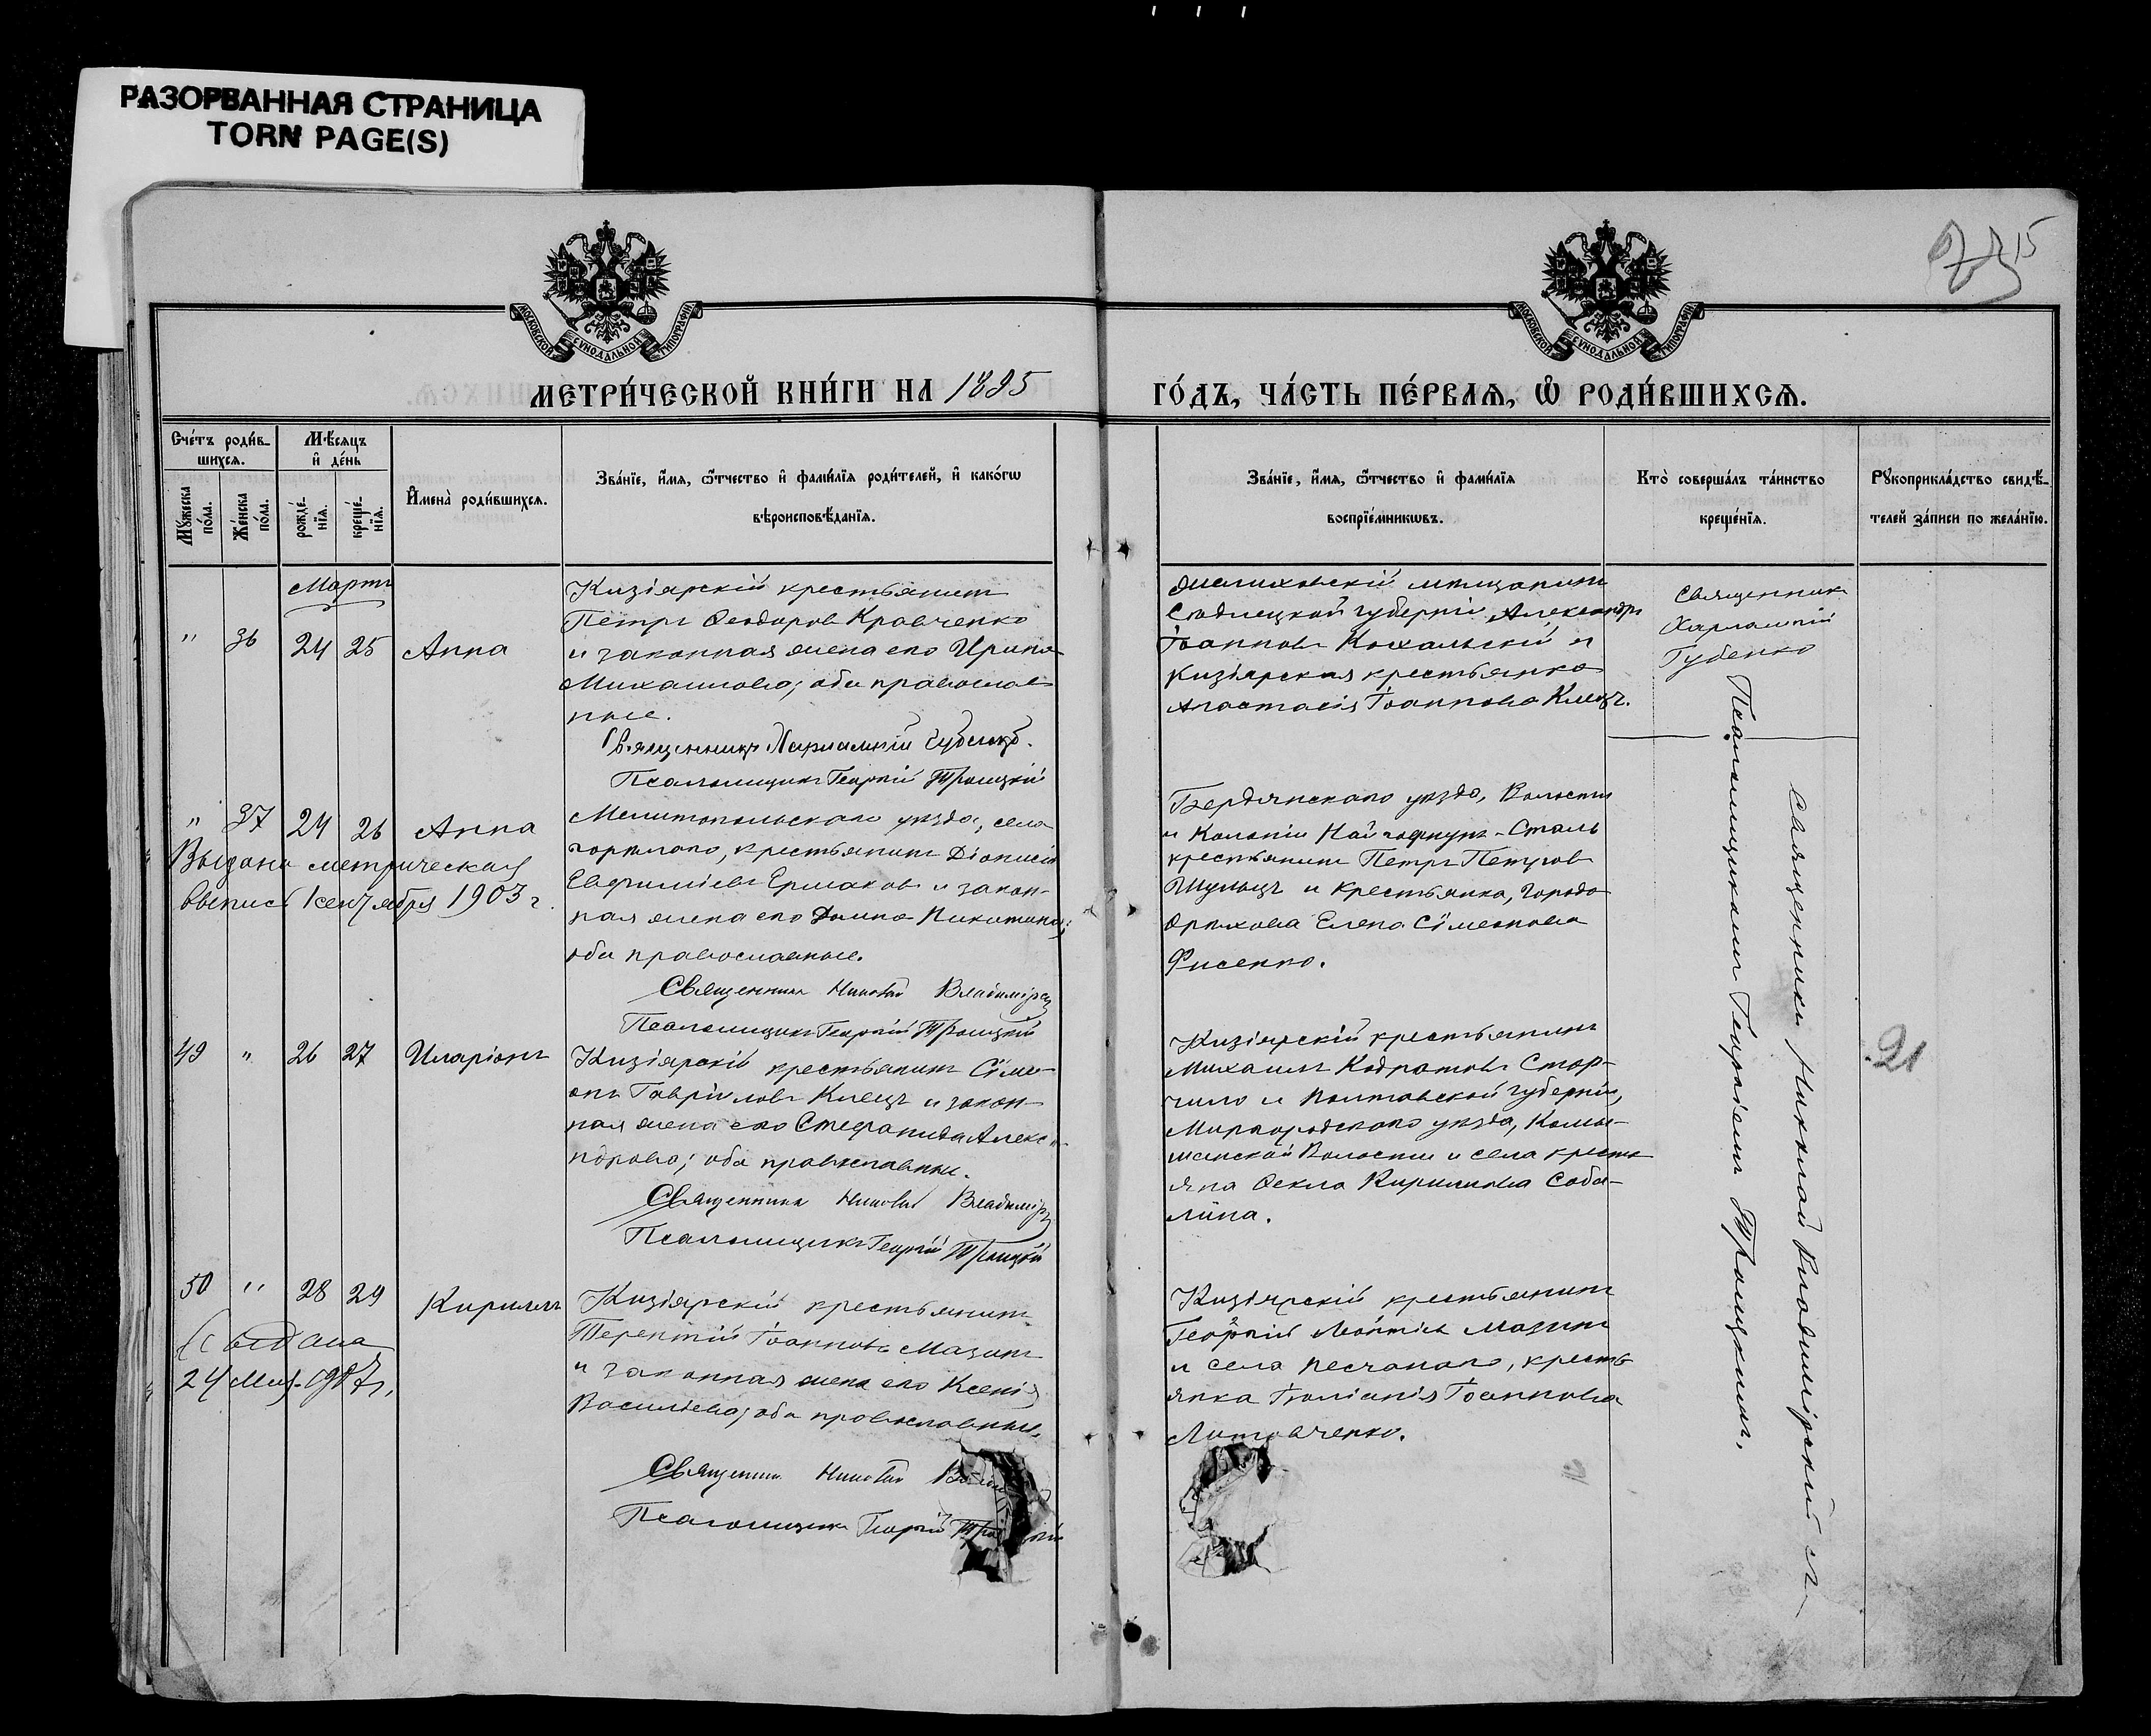 РАЗОРВАННАЯ СТРАНИЦА
TORN PAGE(S)
15
МОСКОВСКОЙ СУНОДАЛЬНОЙ ТИПОГРАФІИ
МОСКОВСКОЙ СУНОДАЛЬНОЙ ТИПОГРАФІИ
МЕТРИ́ЧЕСКОЙ КНИ́ГИ НА 1895
ГО́ДЪ, ЧА́СТЬ ПЕ́РВАѦ, Ѡ҆ РОДИ́ВШИХСѦ.
Сче́тъ роди́в-
шихсѧ.
Мѣ́сяцъ
и҆ де́нь
Мꙋ́жеска
по́ла.
Же́нска
по́ла.
рожде́-
нїѧ.
креще́-
нїѧ.
И҆мена̀ роди́вшихсѧ.
Зва́нїе, и҆́мѧ, ѻ҆́тчество и҆ фами́лїѧ роди́телей, и҆ како́гѡ
вѣроисповѣ́данїѧ.
Зва́нїе, и҆́мѧ, ѻ҆́тчество и҆ фами́лїѧ
воспрїе́мникѡвъ.
Кто̀ соверша́лъ та́инство
креще́нїѧ.
Рꙋкоприкла́дство свидѣ́-
телей за́писи по жела́нїю.
Мартъ
" 36 24 25 Анна
Кизіярскій крестьянинъ
Петръ Ѳеодоровъ Кравченко
и законная жена его Ирина
Михаилова; оба православ
ные.
Священникъ Харлампій Губенко.
Псаломщикъ Георгій Троицкій
мѣщанинъ
Сѣдлецкой губерніи, Александръ
Іоанновъ и
Кизіярская крестьянка
Анастасія Іоаннова Клецъ.
Священникъ
Харлампій
Губенко
" 37 24 26 Анна
Выдана метрическая
выпись 1 сентября 1903 г.
Мелитопольскаго уѣзда, села
Горѣлаго, крестьянинъ Діонисій
Евфиміевъ Ермаковъ и закон-
ная жена его Домна Никитина;
оба православные.
Священникъ Николай Владимірскій
Псаломщикъ Георгій Троицкій
Бердянскаго уѣзда, Волости
и Колоніи
крестьянинъ Петръ Петровъ
Шульцъ и крестьянка, города
Орѣхова Елена Сімеонова
Фисенко.
49 " 26 27 Иларіонъ
Кизіярскій крестьянинъ Сіме-
онъ Гавріиловъ Клецъ и закон-
ная жена его Стефанида Алекса-
ндрова; оба православные.
Священникъ Николай Владимірскій
Псаломщикъ Георгій Троицкій
Кизіярскій крестьянинъ
Михаилъ Кодратовъ Стор-
чило и Полтавской губерніи,
Миргородскаго уѣзда, Комы-
шанской Волости и села кресть
яна Ѳекла Кирилова Соба-
21
50 " 28 29 Кириллъ
Выдана
24
Кизіярскій крестьянинъ
Терентій Іоанновъ Мазинъ
и законная жена его Ксенія
Василіева; оба православные.
Священникъ Николай
Псаломщикъ Георгій
Кизіярскій крестьянинъ
Георгій Леонтіевъ Мазинъ
и села Песчанаго, кресть
янка Іуліанія Іоаннова
Литовченко.
Священники Николай Владимірскій съ
Псаломщикомъ Георгіемъ Троицкимъ.